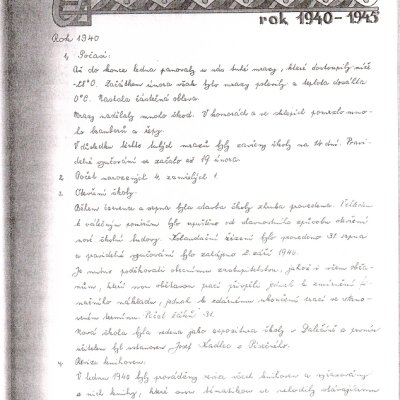 rok 1940-1945
Rok 1940
1, Počasí:
Až do konce ledna panovaly u nás tuhé mrazy, které dostoupily níže
-22°C. Začátkem února však tyto mrazy polevily a teplota dosáhla
0°C. Nastala částečná obleva.
Mrazy nadělaly mnoho škod. V komorách a ve sklepích pomrzlo mno-
ho bramborů a řepy.
V důsledku těchto tuhých mrazů byly zavřeny školy na 14 dní. Pravi-
delné vyučování se začalo až 19 února.
2. Počet narozených 4 zemřelých 1
3. Otevření školy.
Během července a srpna byla stavba školy zhruba provedena. Vzhledem
k válečným poměrům bylo upuštěno od slavnostního způsobu otevření
nové školní budovy. Kolaudační řízení bylo provedeno 31. srpna
a pravidelné vyučování bylo zahájeno 2. září 1940.
Je nutno poděkovati obecnímu zastupitelstvu, jakož i všem obča-
nům, kteří svou obětavou prací přispěli jednak k zmírnění fi-
nančního nákladu, jednak k zdárnému ukončení prací ve stano-
veném termínu. Počet žáků 31.
Nová škola byla vedena jako expositura školy v Dalečíně a prvním
učitelem byl ustanoven Josef Kadlec z
4. Revize knihoven.
V lednu 1940 byly prováděny revize všech knihoven a vyřazovány
z nich knihy, které svou tématikou se nehodily